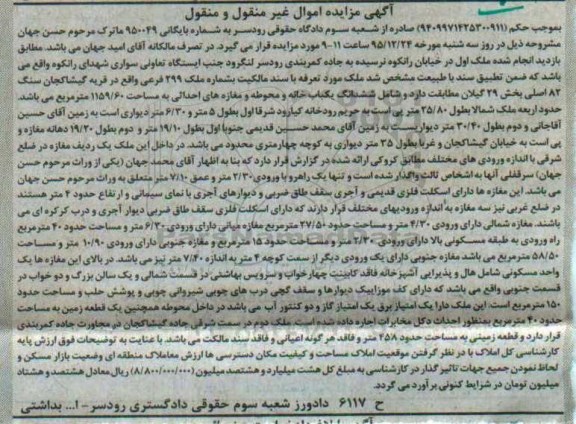 آگهی مزایده اموال غیر منقول و منقول
بموجب حکم (۹۴۰۹۹۷۱۴۲۵۳۰۰۹۱۱) صادره از شعبه سوم دادگاه حقوقی رودسر به شماره بایگانی ۹۵۰۰۴۹ ماترک مرحوم حسن جهان
مشروحه ذیل در روز سه شنبه مورخه ۹۵/۱۲/۲۴ ساعت ۱۱-۹ مورد مزایده قرار می گیرد. در تصرف مالکانه آقای امید جهان می باشد. مطابق
بازدید انجام شده ملک اول در خیابان رانکوه نرسیده به جاده کمربندی رودسر لنگرود جنب ایستگاه تعاونی سواری شهدای رانکوه واقع می
باشد که ضمن تطبیق سند با طبیعت مشخص شد ملک مورد تعرفه با سند مالکیت بشماره ملک ۲۹۹ فرعی واقع در قریه گیشاکجان سنگ
۸۲ اصلی بخش ۲۹ گیلان مطابقت دارد و شامل ششدانگ یکباب خانه و محوطه و مغازه های احداثی به مساحت ۱۱۵۹/۶۰ مترمربع می باشد.
حدود اربعه ملک شمالا بطول ۲۵/۸۰ متر پی است به حریم رودخانه کیارود شرقا اول بطول ۵ متر و ۶/۳۰ متر دیواری است به زمین آقای حسین
آقاجانی و دوم بطول ۳۰/۴۰ متر دیواریست به زمین آقای محمد حسین قدیمی جنوبا اول بطول ۱۹/۱۰ متر و دوم بطول ۱۹/۲۰ دهانه مغازه و
پی است به خیابان گیشاکجان و غربا بطول ۳۵ متر دیواری به کوچه چهارمتری محدود می باشد. در داخل این ملک یک ردیف مغازه در ضلع
شرقی با اندازه ورودی های مختلف مطابق کروکی ارائه شده در گزارش قرار دارد که بنا به اظهار آقای محمد جهان (یکی از وراث مرحوم حسن
جهان) سرقفلی آنها به اشخاص ثالث واگذار شده است و تنها یک راهرو با ورودی ۲/۳۰ متر و عمق ۷/۱۰ متر متعلق به وراث مرحوم حسن جهان
می باشد. این مغازه ها دارای اسکلت فلزی قدیمی و آجری سقف طاق ضربی و دیوارهای آجری با نمای سیمانی و ارتفاع حدود ۴ متر هستند
در ضلع غربی نیز سه مغازه به اندازه ورودیهای مختلف قرار دارند که دارای اسکلت فلزی سقف طاق ضربی دیوار آجری و درب کرکره ای می
باشند. مغازه شمالی دارای ورودی ۴/۳۰ متر و مساحت حدود ۲۷/۵۰ مترمربع مغازه میانی دارای ورودی ۶/۲۰ متر و مساحت حدود ۴۰ مترمربع
راه ورودی به طبقه مسکونی بالا دارای ورودی ۲/۳۰ متر و مساحت حدود ۱۵ مترمربع و مغازه جنوبی دارای ورودی ۱۰/۹۰ متر و مساحت
۵۸/۵۰ مترمربع می باشد مغازه جنوبی دارای یک ورودی دیگر از سمت کوچه ۴ متریه اندازه ۷/۴۰ متر نیز می باشد. در بالای این مغازه ها یک
واحد مسکونی شامل هال و پذیرایی آشپزخانه فاقد کابینت چهارخواب و سرویس بهداشتی در قسمت شمالی و یک سالن بزرگ و دو خواب در
قسمت جنوبی واقع می باشد که دارای کف موزاییک دیوارها و سقف گچی درب های چوبی شیروانی چوبی و پوشش حلب و مساحت حدود
۱۵۰ مترمربع است: این ملک دارا یک امتیاز برق یک امتیاز گاز و دو کنتور آب می باشد در داخل محوطه همچنین یک قطعه زمین به مساحت
حدود ۴۰ مترمربع بمنظور احداث دکل مخابرات اجاره داده شده است ملک دوم در سمت شرقی جاده گیشاکجان در مجاورت جاده کمربندی
قرار دارد و قطعه زمینی به مساحت حدود ۲۵۸ متر و فاقد هر گونه اعیانی و فاقد سند مالکیت می باشد. با عنایت به توضیحات فوق ارزش پایه
کارشناسی کل املاک با در نظر گرفتن موقعیت املاک مساحت و کیفیت مکان دسترسی ها ارزش معاملاک منطقه ای وضعیت بازار مسکن و
لحاظ نمودن جمیع جهات تاثیر گذار در کارشناسی به مبلغ کل هشت میلیارد و هشتصد میلیون (۸/۸۰۰/۰۰۰/۰۰۰) ریال معادل هشتصد و هشتاد
میلیون تومان در شرایط کنونی برآورد می گردد.
ح ۶۱۱۷ دادورز شعبه سوم حقوقی دادگستری رودسر – ا... بداشتی